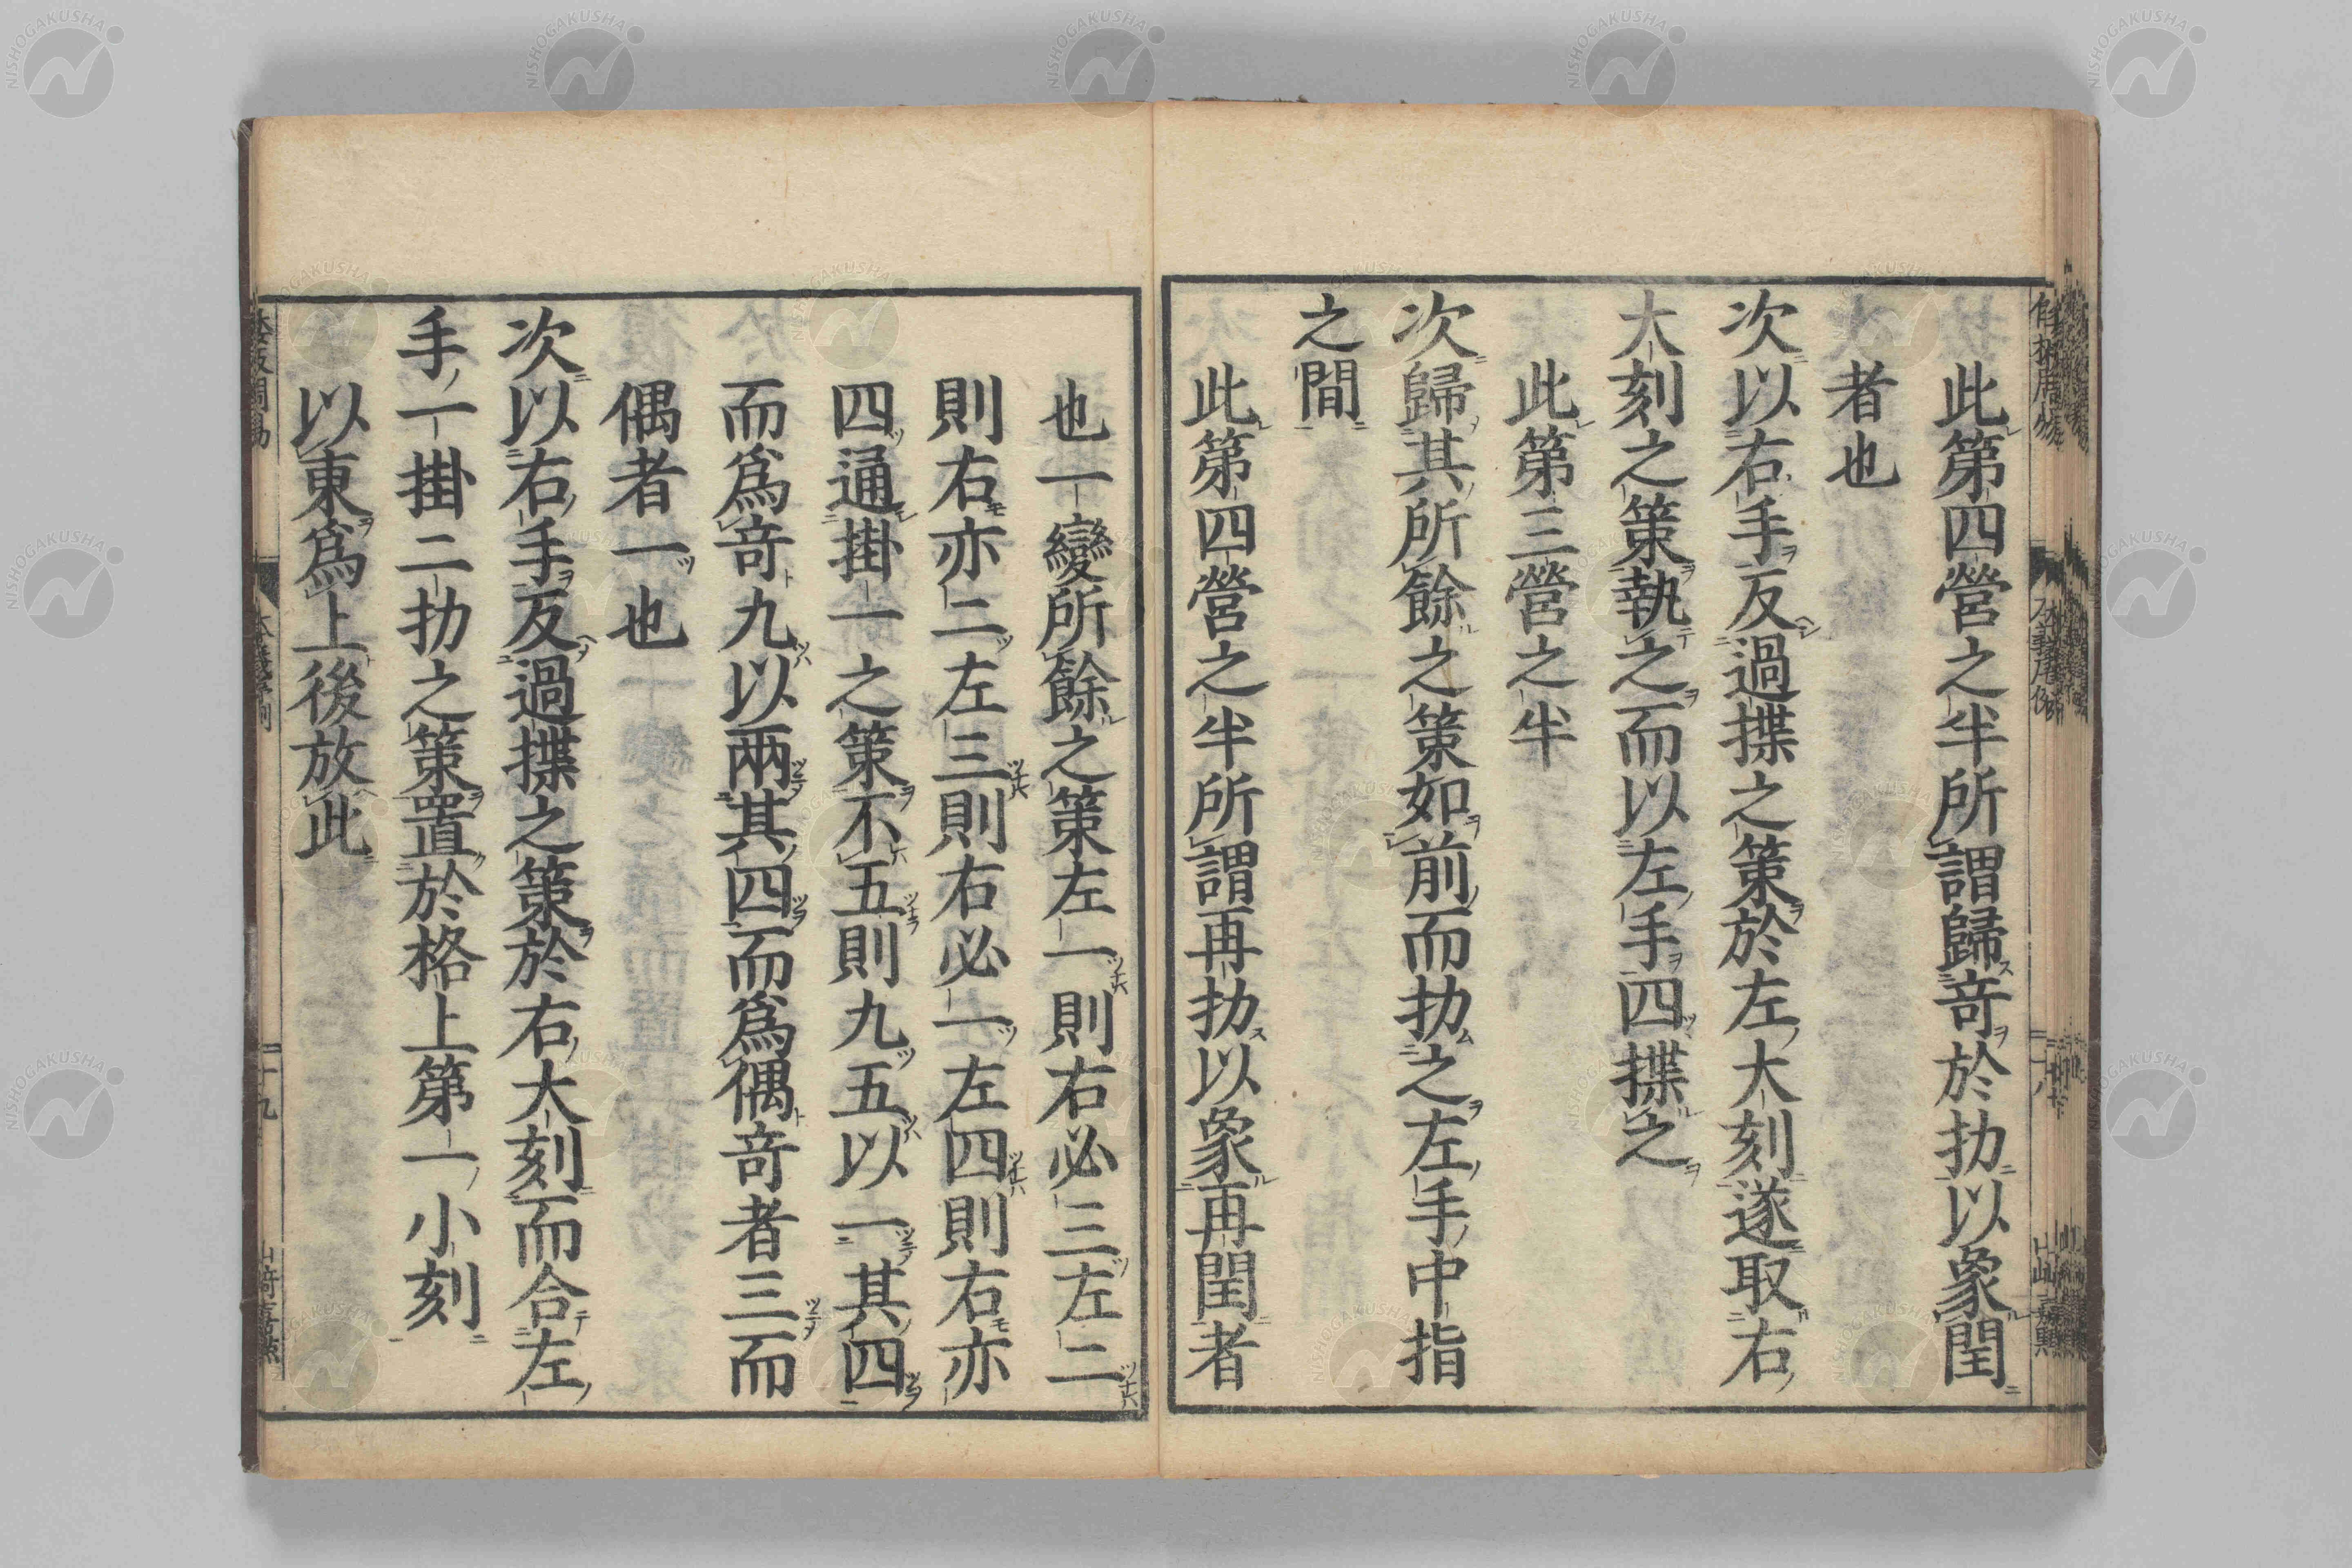 此第四營之半所謂歸竒於扐以象閏
者也
次以右手反過揲之策於左大刻遂取右
大刻之策執之而以左手四揲之
此第三營之半
次歸其所餘之策如前而扐之左手中指
之間
此第四營之半所謂再扐以象再閏者
也一變所餘之策左一則右必三左二
則右亦二左三則右必一左四則右亦
四通掛一之策不五則九五以一其四
而爲竒九以兩其四而爲偶竒者三而
偶者一也
次以右手反過揲之策於右大刻而合左
手一掛二扐之策置於格上第一小刻
以東爲上後放此